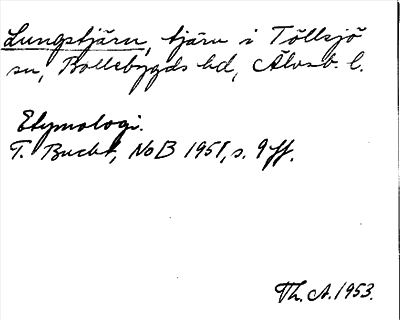 Lungstjärn, tjärn i Töllsjö
sn, Bollebygds hd, Älvsb. l.
Etymologi.
T. Bucht, NoB 1951, s. 9 ff.
Th. A. 1953.